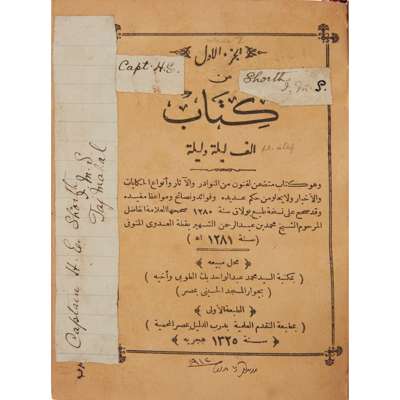 الجزء الاول
من
Capt. H. E.
Shorth
I. M. S.
كتاب
الف ليلة وليلة
وهو كتاب متضمن لفنون من النوادر والآثار وأنواع الحكايات
والأخبار ولا يخلو من حكم عديده وفوائد ونصائح ومواعظ مفيده
وقد صحح على نسخة طبع بولاق سنة ١٢٨٠ صححها العلامة الفاضل
المرحوم الشيخ محمد بن عبد الرحمن الشهير بقطة العدوى المتوفى
( سنة ١٢٨١ ه )
محل مبيعه
( بمكتبة السيد محمد عبد الواحد بك الطوبى وأخيه )
( بجوار المسجد الحسينى بمصر )
الطبعة الأولى
( بمطبعة التقدم العلمية بدرب الدليل بمصر المحمية )
سنة ١٣٢٥ هجريه
Captain H. E. Shorth
I. M. S
Taj mahal